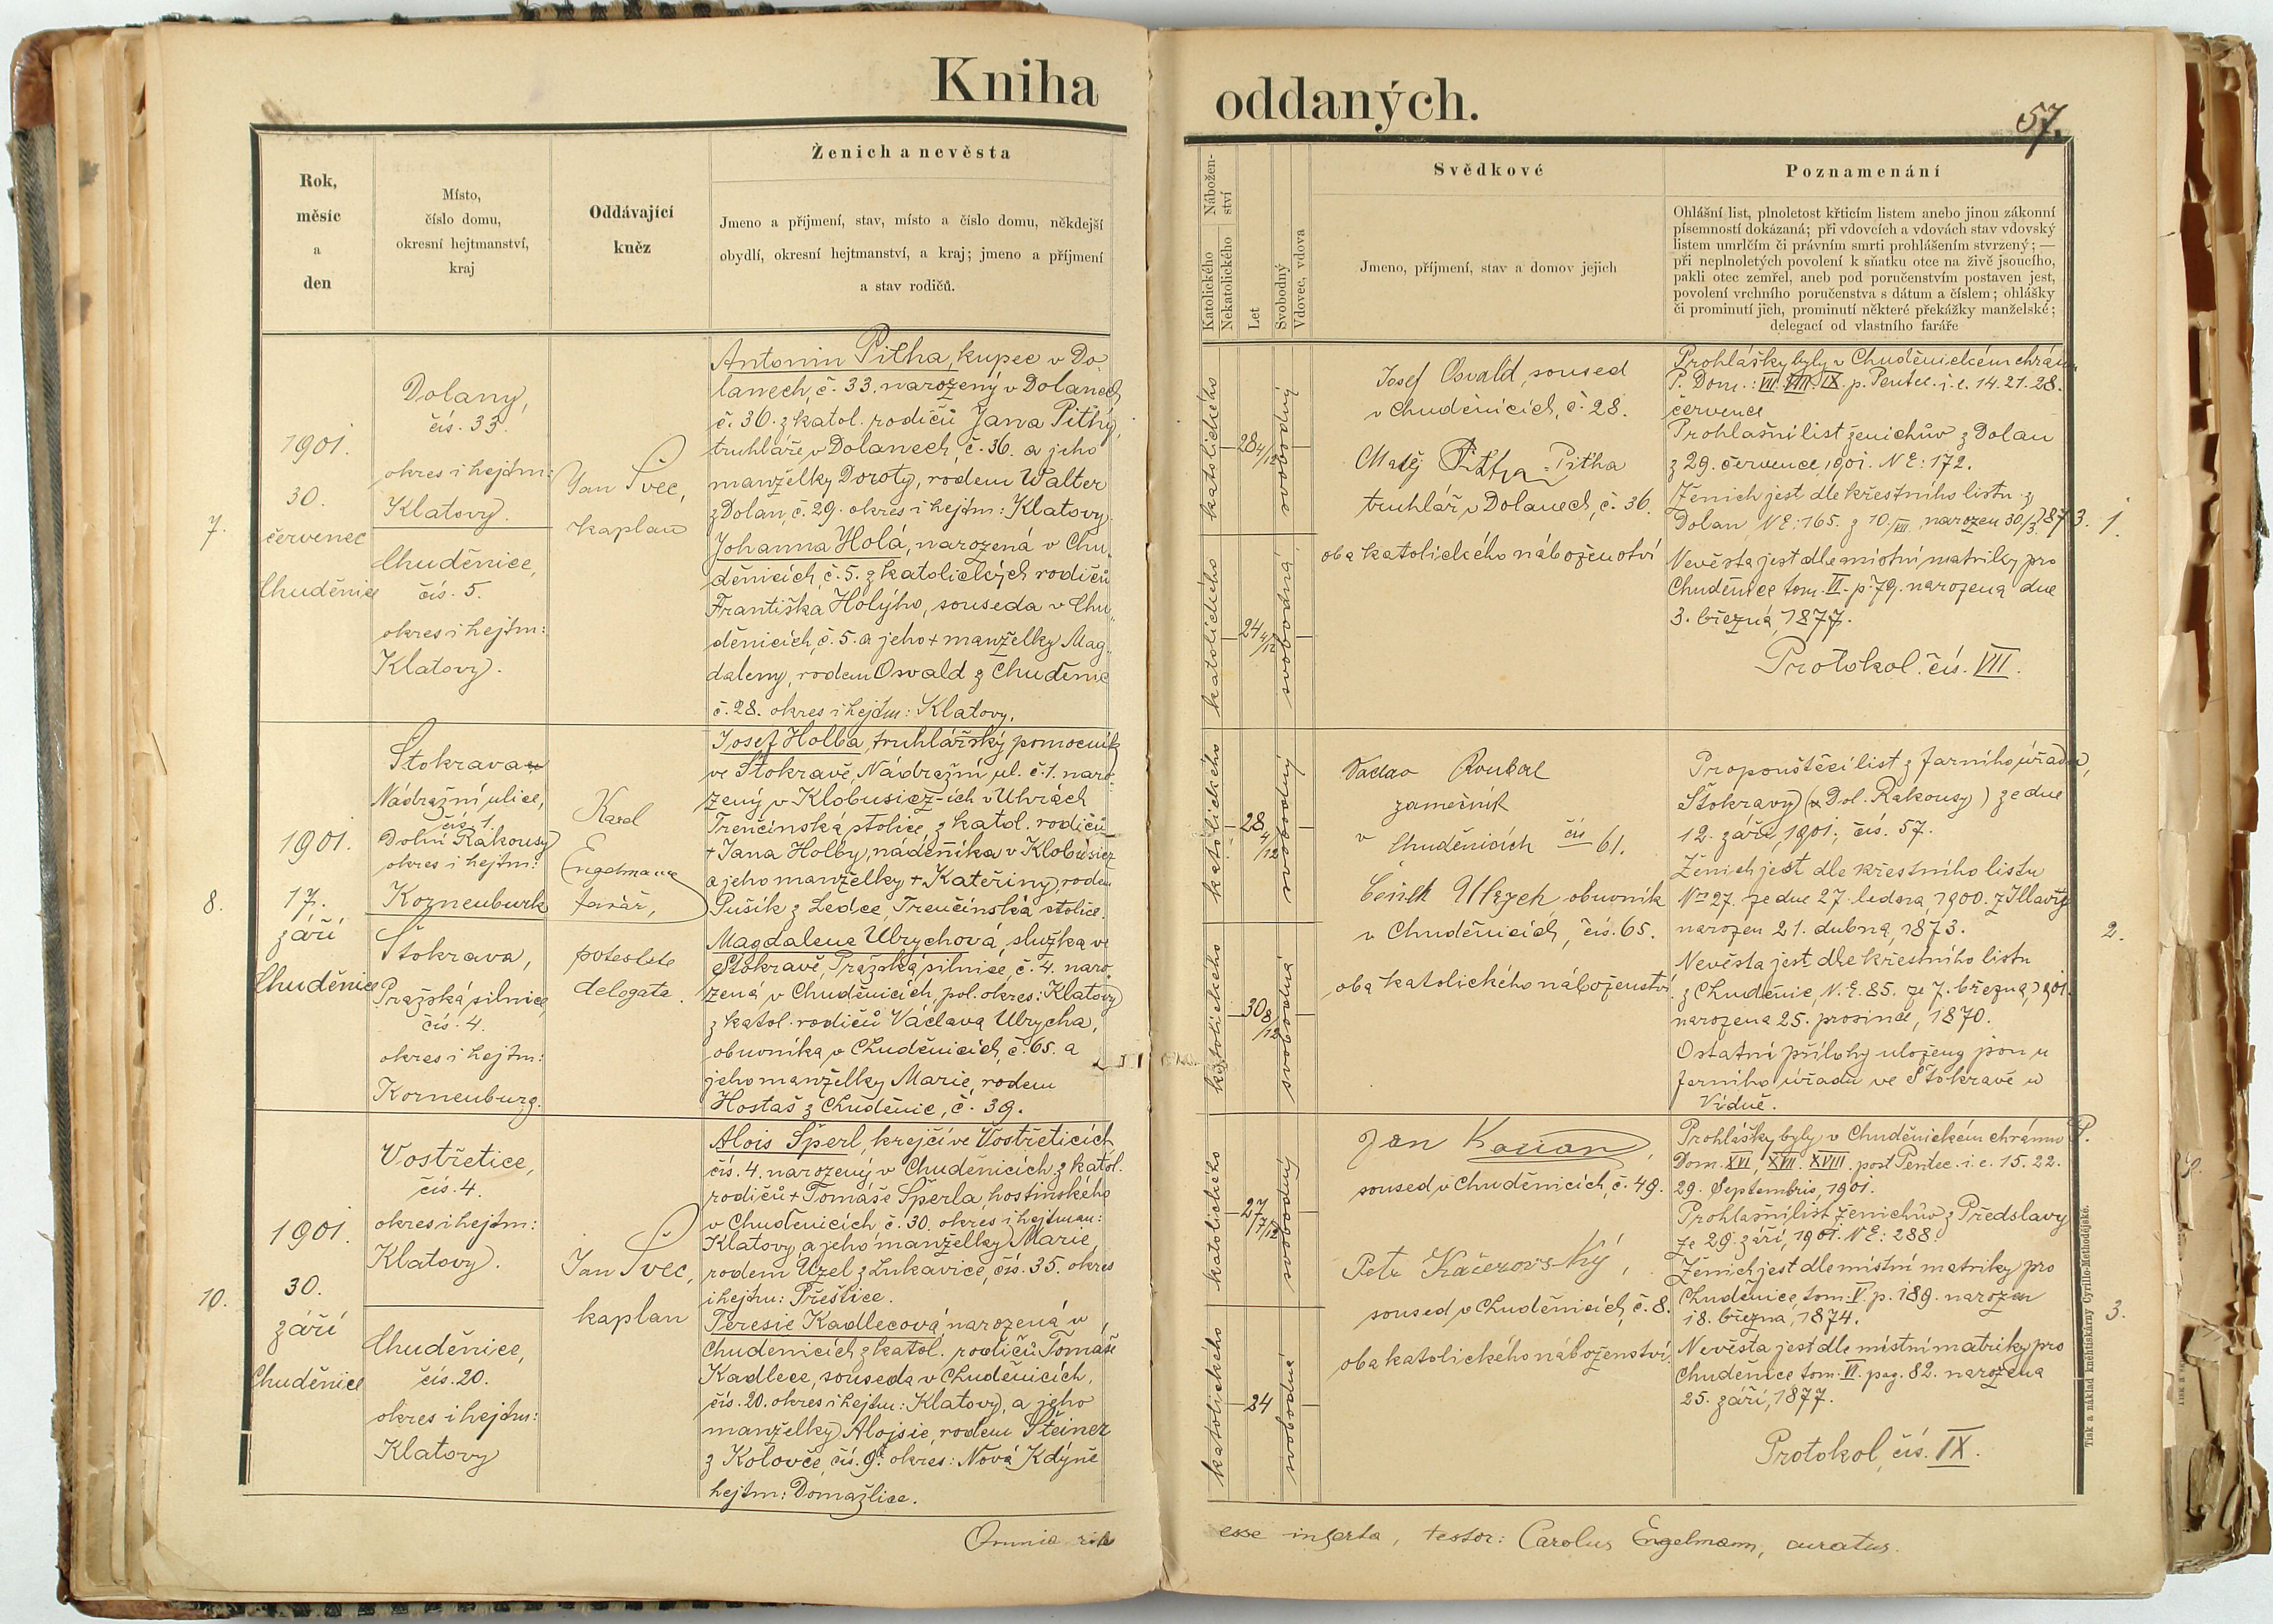 Kniha oddaných.
57.
Rok,
měsíc
a
den
Místo,
číslo domu,
okresní hejtmanství,
kraj
Oddávající
kněz
Ženich a nevěsta
Jmeno a příjmení, stav, místo a číslo domu, někdejší
obydlí, okresní hejtmanství, a kraj; jmeno a příjmení
a stav rodičů.
Nábožen-
ství
Katolického
Nekatolického
Let
Svobodný
Vdovec, vdova
Svědkové
Jmeno, příjmení, stav a domov jejich
Poznamenání
Ohlášní list, plnoletost křticím listem anebo jinou zákonní
písemností dokázaná; při vdovcích a vdovách stav vdovský
listem umrlčím či právním smrti prohlášením stvrzený; —
při neplnoletých povolení k sňatku otce na živě jsoucího,
pakli otec zemřel, aneb pod poručenstvím postaven jest,
povolení vrchního poručenstva s dátum a číslem; ohlášky
či prominutí jich, prominutí některé překážky manželské;
delegací od vlastního faráře
7.
1901.
30.
červenec
Chuděnice
Dolany,
čís. 33.
okres i hejtm:
Klatovy.
Chuděnice,
čís. 5.
okres i hejtm:
Klatovy.
Jan Švec,
kaplan
Antonin Pitha, kupec v Do-
lanech, č. 33. narozený v Dolanech
č. 36. z katol. rodičů Jana Pithy,
truhláře v Dolanech, č. 36. a jeho
manželky Doroty, rodem Walter
z Dolan, č. 29. okres i hejtm: Klatovy.
Johanna Holá, narozená v Chu-
děnicích, č. 5. z katolických rodičů
Františka Holýho, souseda v Chu-
děnicích, č. 5. a jeho + manželky Mag-
daleny, rodem Osvald z Chuděnic
č. 28. okres i hejtm: Klatovy.
katolického
28 4/12
svobodný
katolického
24 4/12
svobodná
Josef Osvald, soused
v Chuděnicích, č. 28.
Matěj Pitha
truhlář v Dolanech, č. 36.
oba katolického náboženství
Prohlášky byly v Chuděnickém chrám.
P. Dom.: VII. VIII. IX. p. Pentec. i. e. 14. 21. 28.
července
Prohlašní list ženichův z Dolan
z 29. července, 1901. NE: 172.
Ženich jest dle křestního listu z
Dolan, NE: 165. z 10./VII. narozen 30/3. 1873.
Nevěsta jest dle místní matriky pro
Chuděnice tom. VI. p. 79. narozena dne
3. března, 1877.
Protokol. čís. VII.
1.
8.
1901.
17.
září
Chuděnice
Štokrava
Nádražní ulice,
čís. 1.
Dolní Rakousy
okres i hejtm:
Korneuburk
Štokrava,
Pražská silnice,
čís. 4.
okres i hejtm:
Korneuburg.
Karel
Engelmann
farář,
potestate
delegata.
Josef Holba, truhlářský pomocník
ve Štokravě, Nádražní ul. č. 1. naro-
zený v Klobusicz-ích v Uhrách
Trenčinská stolice, z katol. rodičů
+ Jana Holby, nádeníka v Klobusicz
a jeho manželky + Kateřiny, rodem
Pušík z Ledce, Trenčinská stolice.
Magdalena Ulrychová, služka ve
Štokravě, Pražská silnice, č. 4. naro-
zená v Chuděnicích, pol. okres: Klatovy
z katol. rodičů Václava Ulrycha,
obuvníka v Chuděnicích, č. 65. a
jeho manželky Marie, rodem
Hostaš z Chuděnic, č. 39.
katolického
28 4/12
svobodný
katolického
30 8/12
svobodná
Václav Roubal
zámečník
v Chuděnicích čís 61.
Čeněk Ulrych obuvník
v Chuděnicích, čís. 65.
oba katolického náboženství.
Propouštěcí list z farního úřadu,
Štokravy (Dol. Rakousy) ze dne
12. září, 1901, čís. 57.
Ženich jest dle křestního listu
No 27. ze dne 27. ledna, 1900. z Illavy
narozen 21. dubna, 1873.
Nevěsta jest dle křestního listu
z Chuděnic, N. E. 85. ze 7. března, 1901.
narozena 25. prosince, 1870.
Ostatní přílohy uloženy jsou u
farního úřadu ve Štokravě u
Vídně.
2.
10.
1901.
30.
září
Chuděnice
Vostřetice,
čís. 4.
okres i hejtm:
Klatovy.
Chuděnice,
čís. 20.
okres i hejtm:
Klatovy
Jan Švec,
kaplan
Alois Šperl, krejčí ve Vostřeticích
čís. 4. narozený v Chuděnicích z katol.
rodičů + Tomáše Šperla, hostinského
v Chuděnicích, č. 30. okres i hejtman:
Klatovy, a jeho manželky Marie
rodem Uzel z Lukavice, čís. 35. okres
i hejtm: Přeštice.
Teresie Kadlecová narozená v
Chuděnicích z katol. rodičů Tomáše
Kadlece, souseda v Chuděnicích,
čís. 20. okres i hejtm: Klatovy, a jeho
manželky Alojsie, rodem Šteiner
z Kolovče, čís. 9. okres: Nová Kdýně
hejtm: Domažlice.
katolického
27 7/12
svobodný
katolického
24
svobodná
Jan Kauan,
soused v Chuděnicích, č. 49.
Petr Kačerovský,
soused v Chuděnicích, č. 8.
oba katolického náboženství.
Prohlášky byly v Chuděnickém chrámu P.
Dom. XVI, XVII. XVIII. post Pentec. i. e. 15. 22.
29. Septembris, 1901.
Prohlašní list ženichův z Předslavy
ze 29. září, 1901. NE: 288.
Ženich jest dle místní matriky pro
Chuděnice tom. V. p. 189. narozen
18. března, 1874.
Nevěsta jest dle místní matriky pro
Chuděnice tom. VI. pag. 82. narozena
25. září, 1877.
Protokol, čís. IX.
3.
Omnia rite esse inserta, testor: Carolus Engelmann, curatus.
Tisk a náklad kněhtiskárny Cyrillo-Methodějské.